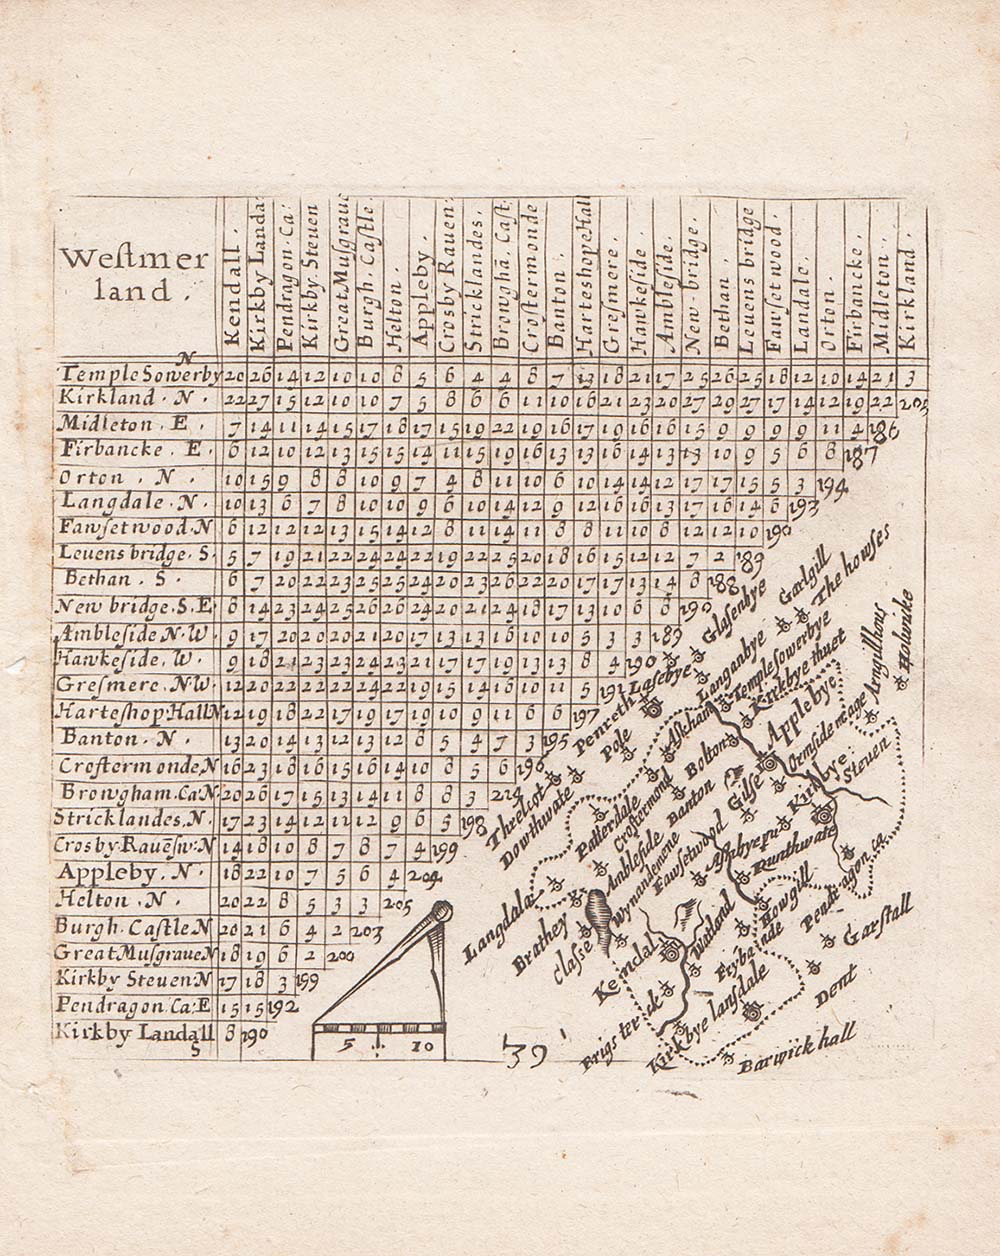 Weſtmer
land.
Kendall.
Kirkby Landa:
Pendragon.Ca:
Kirkby Steuen
Great Muſgraue
Burgh.Caſtle.
Helton.
Appleby.
Crosby Rauen:
Stricklandes.
Browghā.Caſt:
Croſtermonde
Banton.
Harteshope Hall
Greſmere.
Hawkeſide.
Ambleſide.
New-bridge.
Bethan.
Leuens bridge
Fawſet wood.
Landale.
Orton.
Firbancke.
Midleton.
Kirkland.
N
Temple Sowerby 20 26 14 12 10 10 8 5 6 4 4 8 7 13 18 21 17 25 26 25 18 12 10 14 21 3
Kirkland.N. 22 27 15 12 10 10 7 5 8 6 6 11 10 16 21 23 20 27 29 27 17 14 12 19 22 205
Midleton.E. 7 14 11 14 15 17 18 17 15 19 22 19 16 17 19 16 16 15 9 9 9 9 11 4 186
Firbancke.E. 6 12 10 12 13 15 15 14 11 15 19 16 13 13 16 14 13 13 10 9 5 6 8 187
Orton.N. 10 15 9 8 8 10 9 7 4 8 11 10 6 10 14 14 12 17 17 15 5 3 194
Langdale.N. 10 13 6 7 8 10 10 9 6 10 14 12 9 12 16 16 13 17 16 14 6 193
Fawſetwood.N 6 12 12 12 13 15 14 12 8 11 14 11 8 8 11 10 8 12 12 10 190
Leuens bridge.S. 5 7 19 21 22 24 24 22 19 22 25 20 18 16 15 12 12 7 2 183
Bethan.S. 6 7 20 22 23 25 25 24 20 23 26 22 20 17 17 13 14 8 188
New bridge.S.E. 8 14 23 24 25 26 26 24 20 21 24 18 17 13 10 6 8 190
Ambleſide.N.W. 9 17 20 20 20 21 20 17 13 13 16 10 10 5 3 3 189
Hawkeſide.W. 9 18 21 23 23 24 23 21 17 17 19 13 13 8 4 190
Greſmere.N.W. 12 20 22 22 22 24 22 19 15 14 16 10 11 5 191
Harteſhop Hall N 12 19 18 22 17 19 17 19 10 9 11 6 6 197
Banton.N. 13 20 14 13 12 13 12 8 5 4 7 3 195
Croſtermonde.N 16 23 18 16 15 16 14 10 8 5 6 196
Browgham.Ca:N. 20 26 17 15 13 14 11 8 8 3 214
Stricklandes.N. 17 23 14 12 11 12 9 6 5 198
Crosby Rauēſw:N 14 18 10 8 7 8 7 4 199
Appleby.N. 18 22 10 7 5 6 4 204
Helton.N. 20 22 8 5 3 3 205
Burgh.Caſtle.N 20 21 6 4 2 203
Great Muſgraue N 18 19 6 2 200
Kirkby Steuen.N 17 18 3 199
Pendragon.Ca:E 15 15 192
Kirkby Landall 8 190
S
5 10
39
Glaſenbye
Garlgill
The howſes
Laſebye
Langanbye
Templeſowerbye
Kirkbye thuet
Arngillhous
Holwicke
Penreth
Pole
Aſkham
Appelbye
Ormſide
Bolton
Kirkbye
Steuen
Threlcot
Dowthwate
Patterdale
Croſtermond
Banton
Gilſe
Ambleſide
Fawſetwood
Runthwate
Wynandemere
Langdala
Brathey
Claſſe
Howgill
Pendragon ca
Garſtall
Kendal
Watland
Dent
Brigs terak
Kirkbye lansdale
Barwick hall